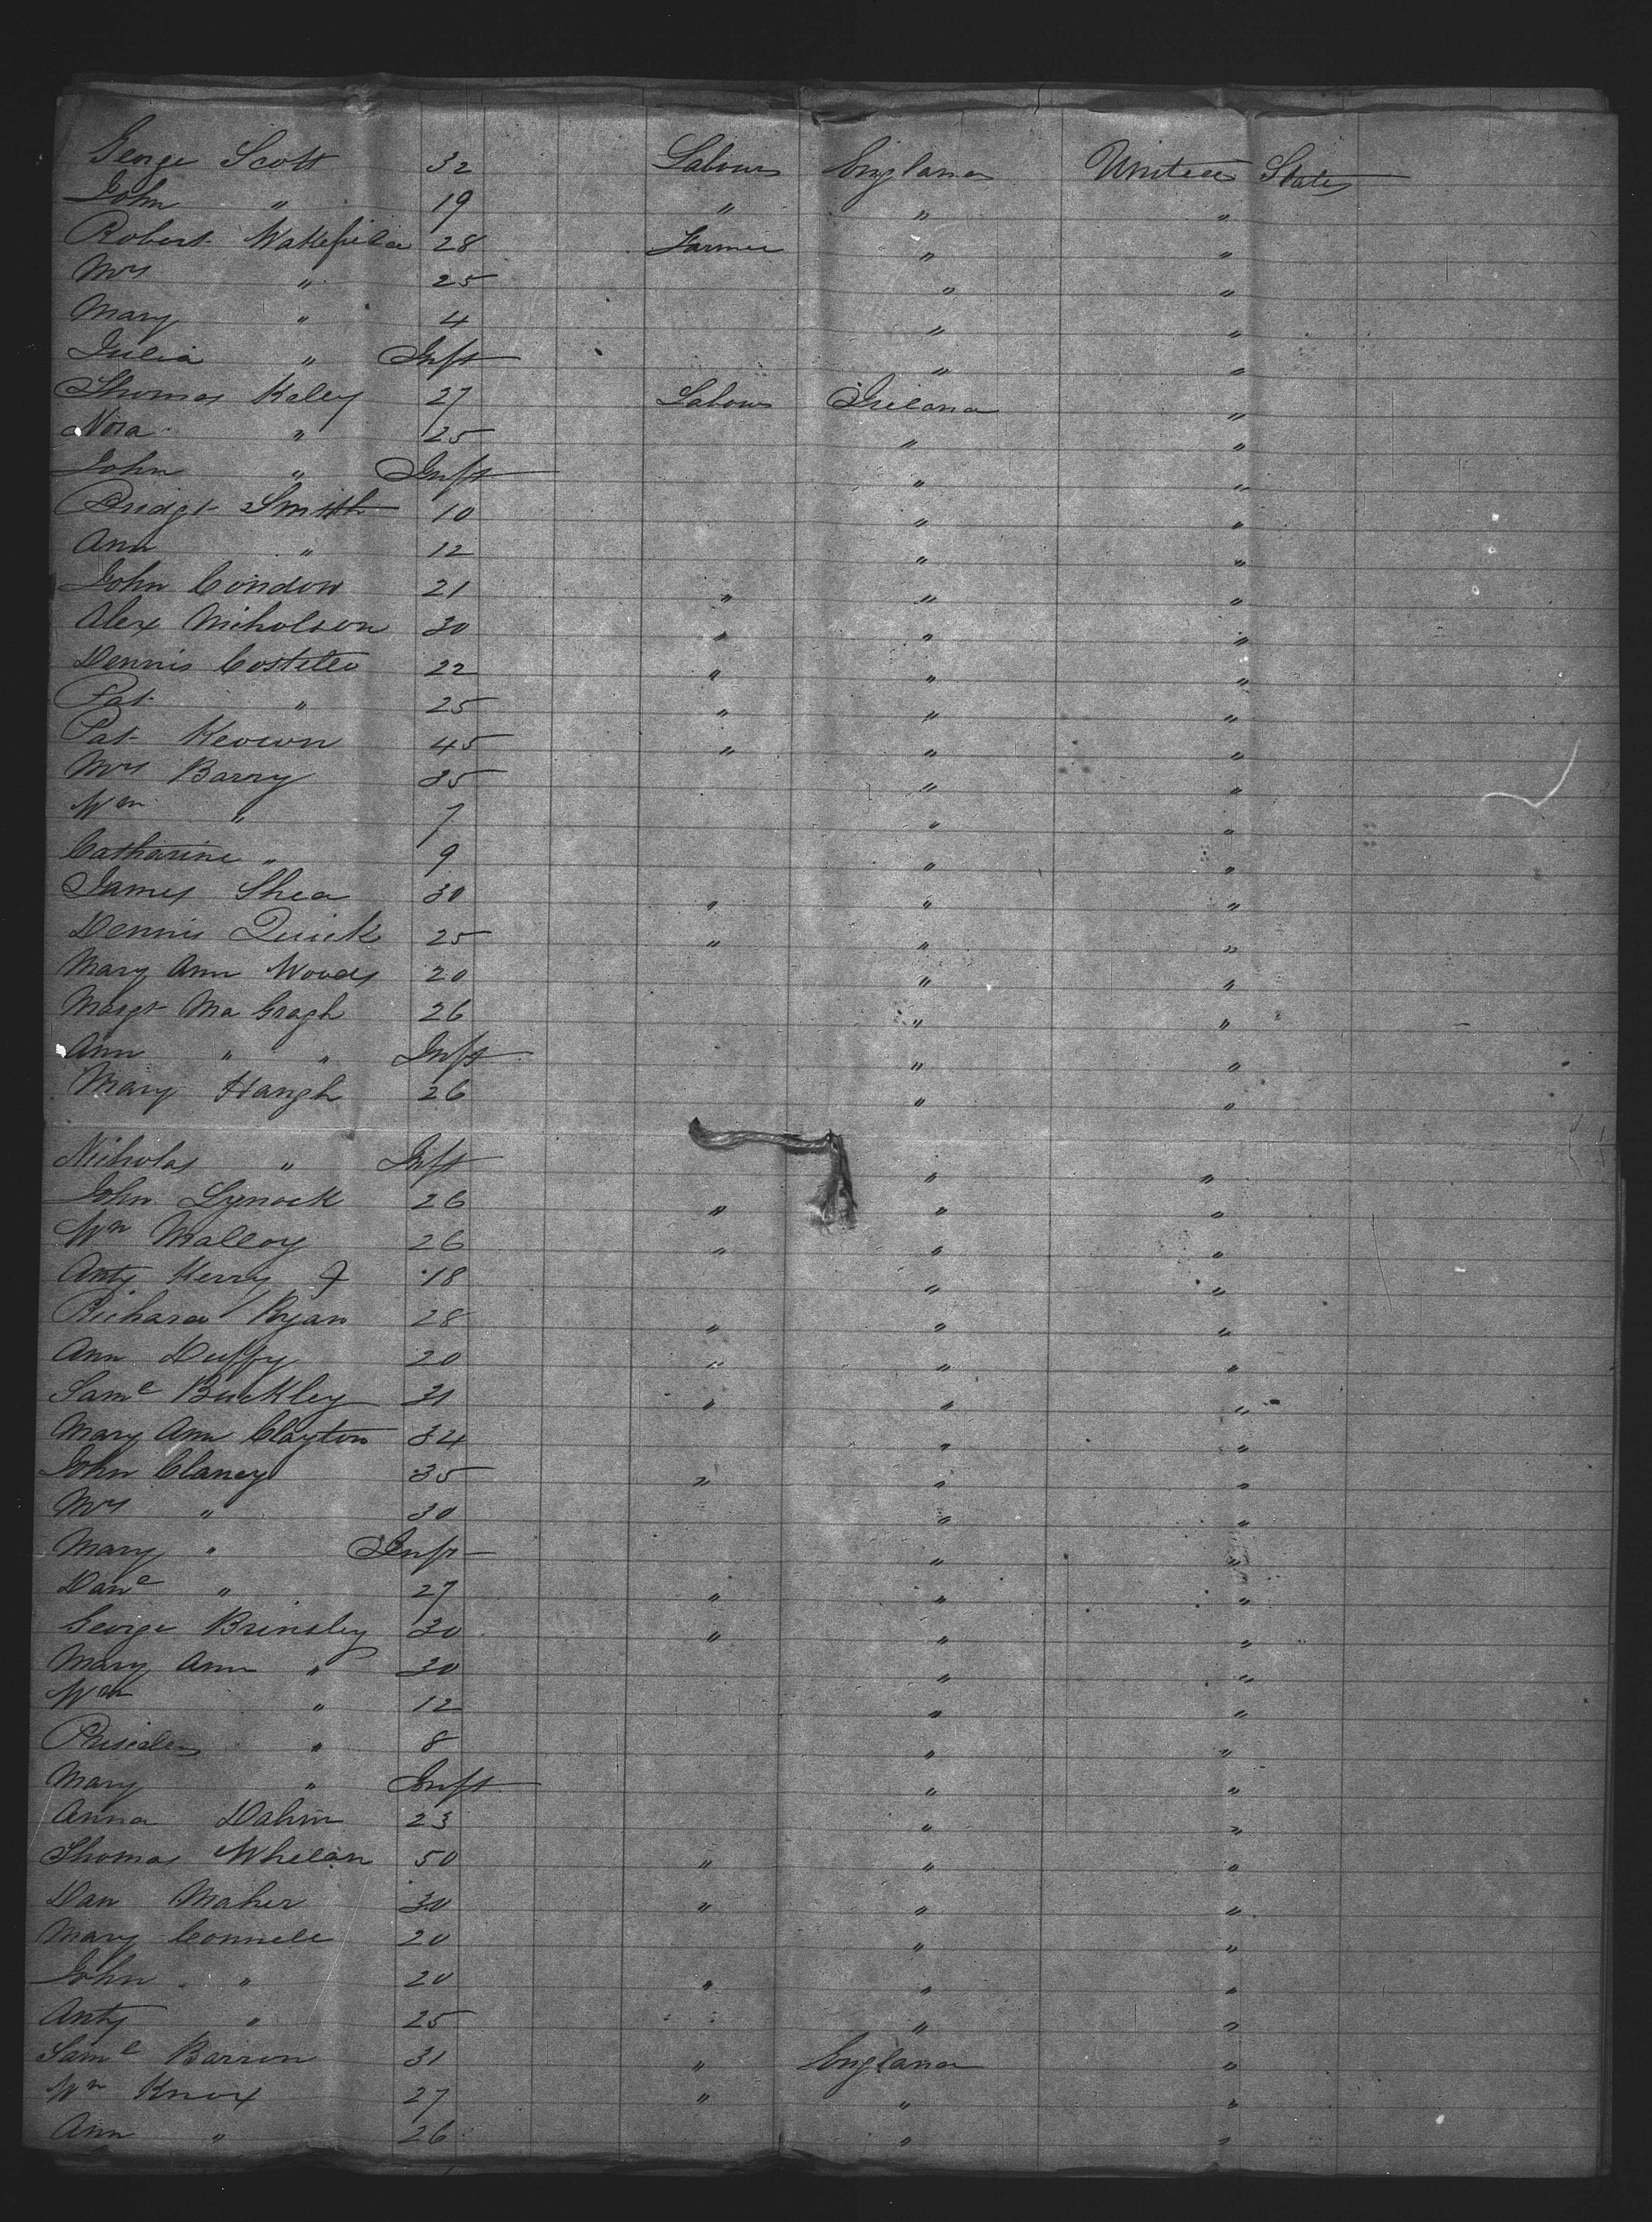 George Scott 32 Labour England United States
John " 19 " " "
Robert Wakefield 28 Farmer " "
Mrs " 25 " "
Mary " 4 " "
Julia " Inft " "
Thomas Keley 27 Labour Ireland "
Nora " 25 " "
John " Inft " "
Bridgt Smith 10 " "
Ann " 12 " "
John Condon 21 " " "
Alex Nicholson 30 " " "
Dennis Costello 22 " " "
Pat " 25 " " "
Pat Keown 45 " " "
Mrs Barry 35 " "
Wm " 7 " "
Catharine " 9 " "
James Shea 30 " " "
Dennis Quirk 25 " " "
Mary Ann Woods 20 " "
Margt Ma Gragh 26 " "
Ann " " Inft " "
Mary Haugh 26 " "
Nicholas " Inft " "
John Lynock 26 " " "
Wm Malloy 26 " " "
Anty Kerry 18 " "
Richard Ryan 28 " " "
Ann Duffy 20 " " "
Saml Buckley 31 " " "
Mary Ann Clayton 34 " "
John Clancy 35 " " "
Mrs " 30 " "
Mary " Inft " "
Danl " 27 " " "
George Brinsley 30 " " "
Mary Ann " 30 " "
Wm " 12 " "
" 8 " "
Mary " Inft " "
Anna 23 " "
Thomas Whelan 50 " " "
Dan Maher 30 " " "
Mary Connell 20 " "
John " 20 " " "
Anty " 25 " " "
Saml Barron 31 " England "
Wm Knox 27 " " "
Ann " 26 " "